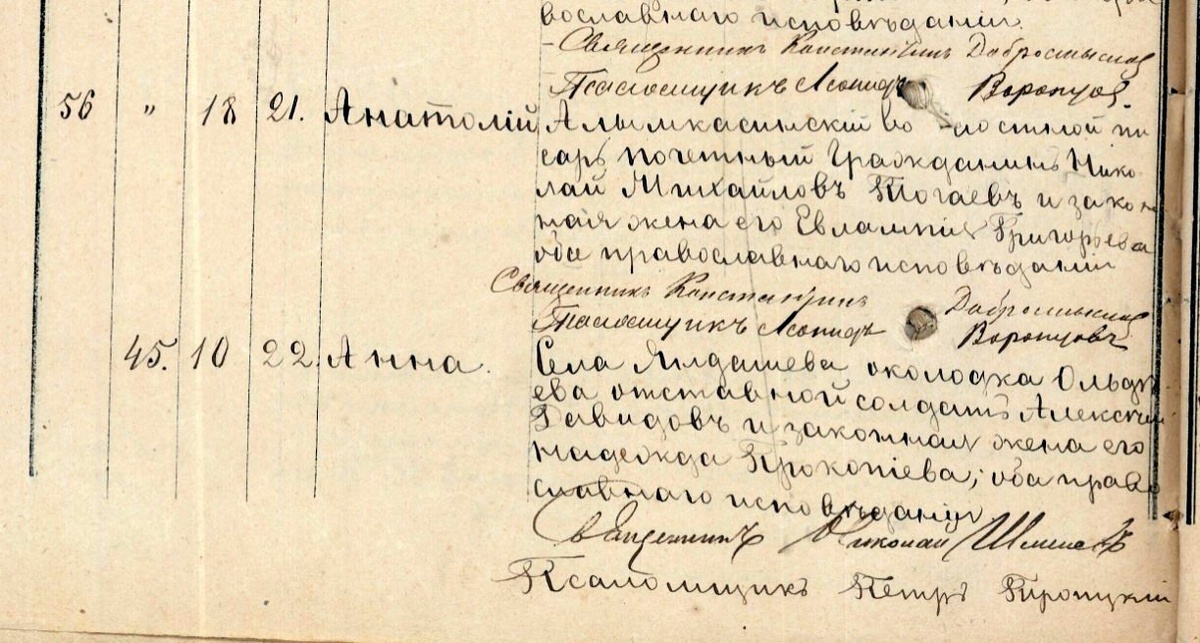 вославнаго исповѣданія
Священникъ Константинъ Добросмыслов
Псаломщикъ Леонидъ Воронцов.
56 " 18 21. Анатолій Алымкасинскій во лостной пи
сарь почетный гражданинъ Нико
лай Михайловъ Тогаевъ и закон
ная жена его Евлампія Григорьева
обе православнаго исповѣданія
Священникъ Константинъ Добросмыслов
Псаломщикъ Леонидъ Воронцовъ
45. 10 22. Анна. Села Яндашева околодка Ольдѣ
ева отставной солдатъ Алексѣй
Давидовъ и законная жена его
Надежда Прокопіева; оба право
славнаго исповѣданія
Священникъ Николай
Псаломщикъ Петръ Троицкій